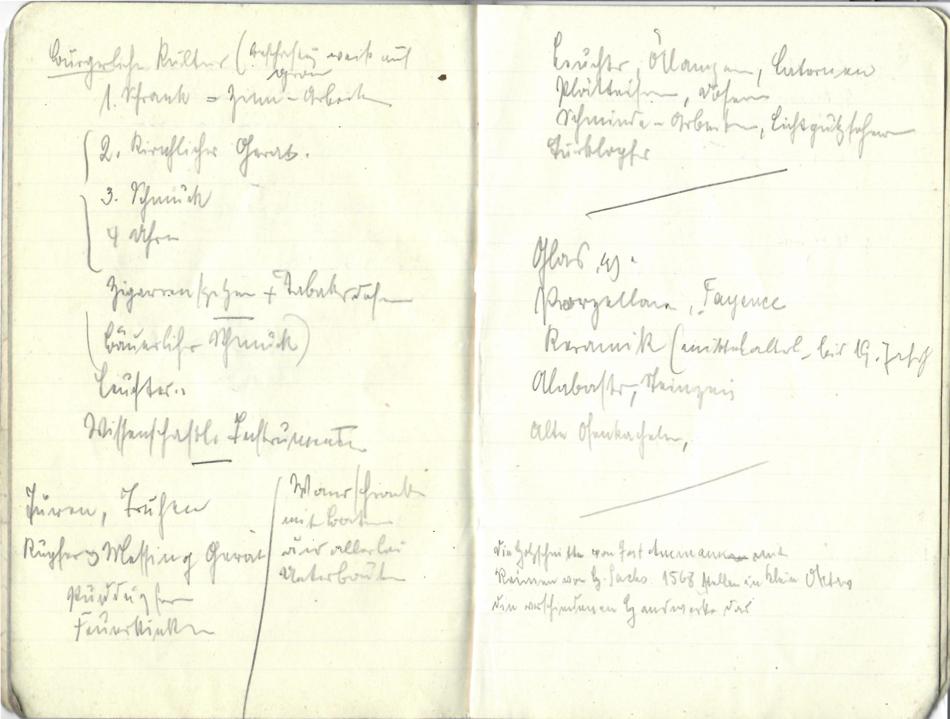 Bürgerliche Kultur ( weiß auf
grau
1. Schrank = Zinn-Arbeiten
2. Kirchlicher Gerät.
3. Schmuck
4 Uhren
Zigarrenspitzen + Tabaksdosen
(Bäuerlicher Schmuck)
Leuchter..
Wissenschaftl. Instrumente
Türen, Truhen
Kupfer u Messing Gerät
Puddingformen
Feuerkieken
Wandschrank
mit
allerlei
Unterbauten
Leuchter, Öllampen, Laternen
Plätteisen,
Schmiede-Arbeiten, Lichtputzscheren
Türklopfer
Glas
Porzellane, Fayence
Keramik (mittelalterl. bis 19. Jahrh
Alabaster, Steinzeug
Alte Ofenkacheln,
die Holzschnitte von Jost Ammann mit
Reimen von H. Sachs. 1568 stellen in klein Oktav
die verschiedenen Handwerke dar